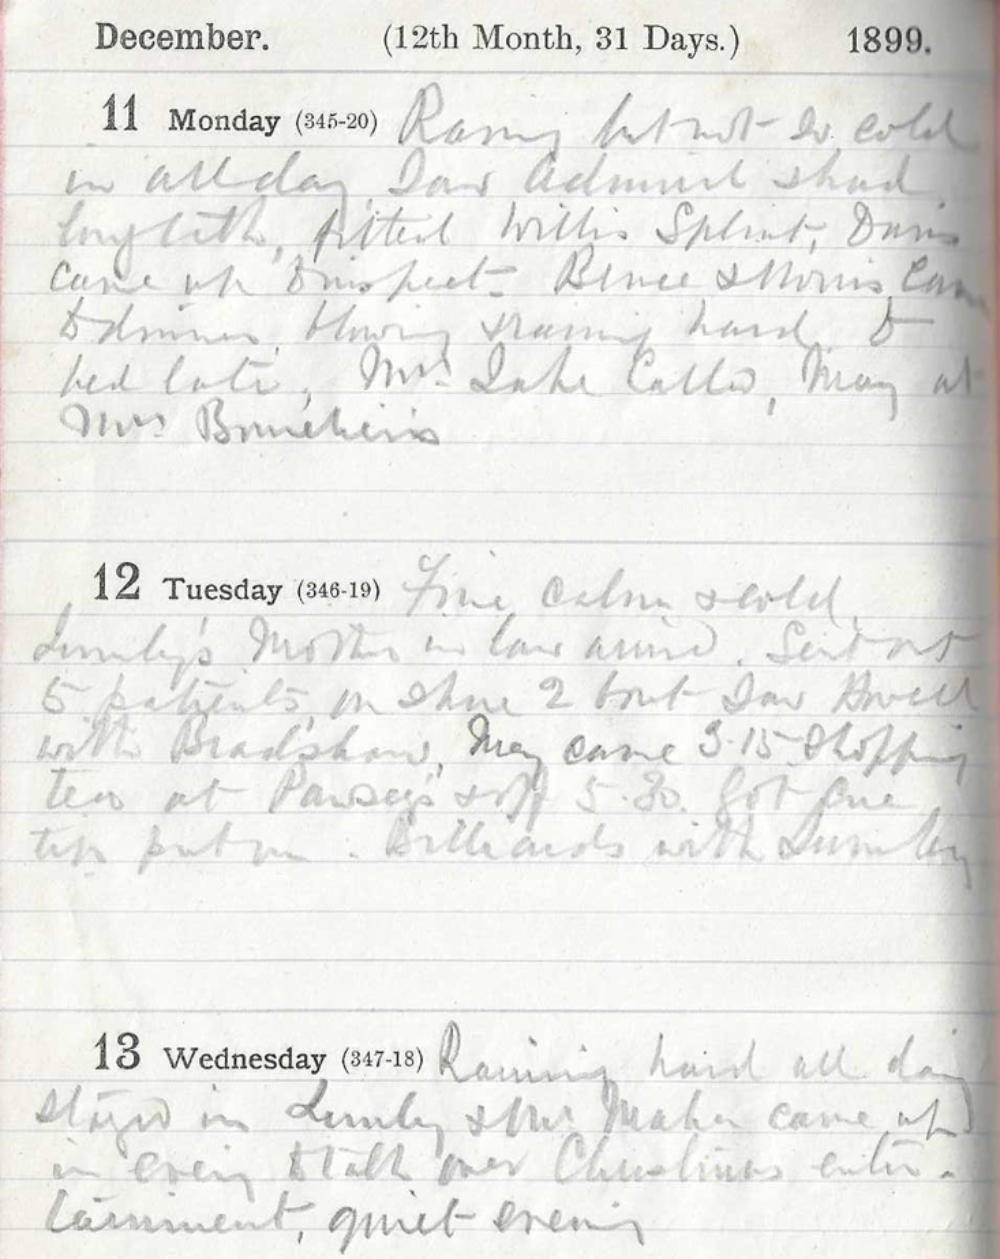 December. (12th Month, 31 Days.) 1899.
11 Monday (345-20) Raining but not so cold
in all day, Saw Admiral &
fitted Willis Splint, Davis
came up to inspect. Bence & Morris Came
to dinner, blowing & raining hard to
bed late, Mrs Lake Called, May at
Mrs
12 Tuesday (346-19) Fine calm & cold
Lumley's Mother in law arrived. Sent out
5 patients, on shore 2 boat Saw Howell
with Bradshaw, May came 3.15 Shopping
tea at Pawsey's & off 5.30. Got one
tip put on. Billiards with Lumley
13 Wednesday (347-18) Raining hard all day
stayed in Lumley & Mr Maher came up
in evening to talk over Christmas enter-
tainment, quiet evening